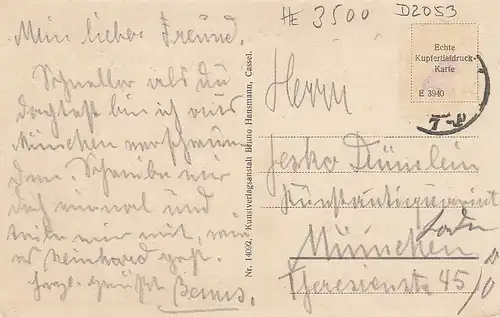 HE 3500 D2053
Mein lieber Freund.
Schneller als du
dachtest bin ich aus
München verschwun
den. Schreibe mir
doch einmal und
teile mir mit, wie
es Reinhard geht.
herzl. grüßt Benus.
Nr. 14092. Kunstverlagsanstalt Bruno Hansmann, Cassel.
Echte
Kupfertiefdruck-
Karte
E 3940
Herrn
Jerko Dümlein
Kunstantiquariat
München
Theresienstr 45/0